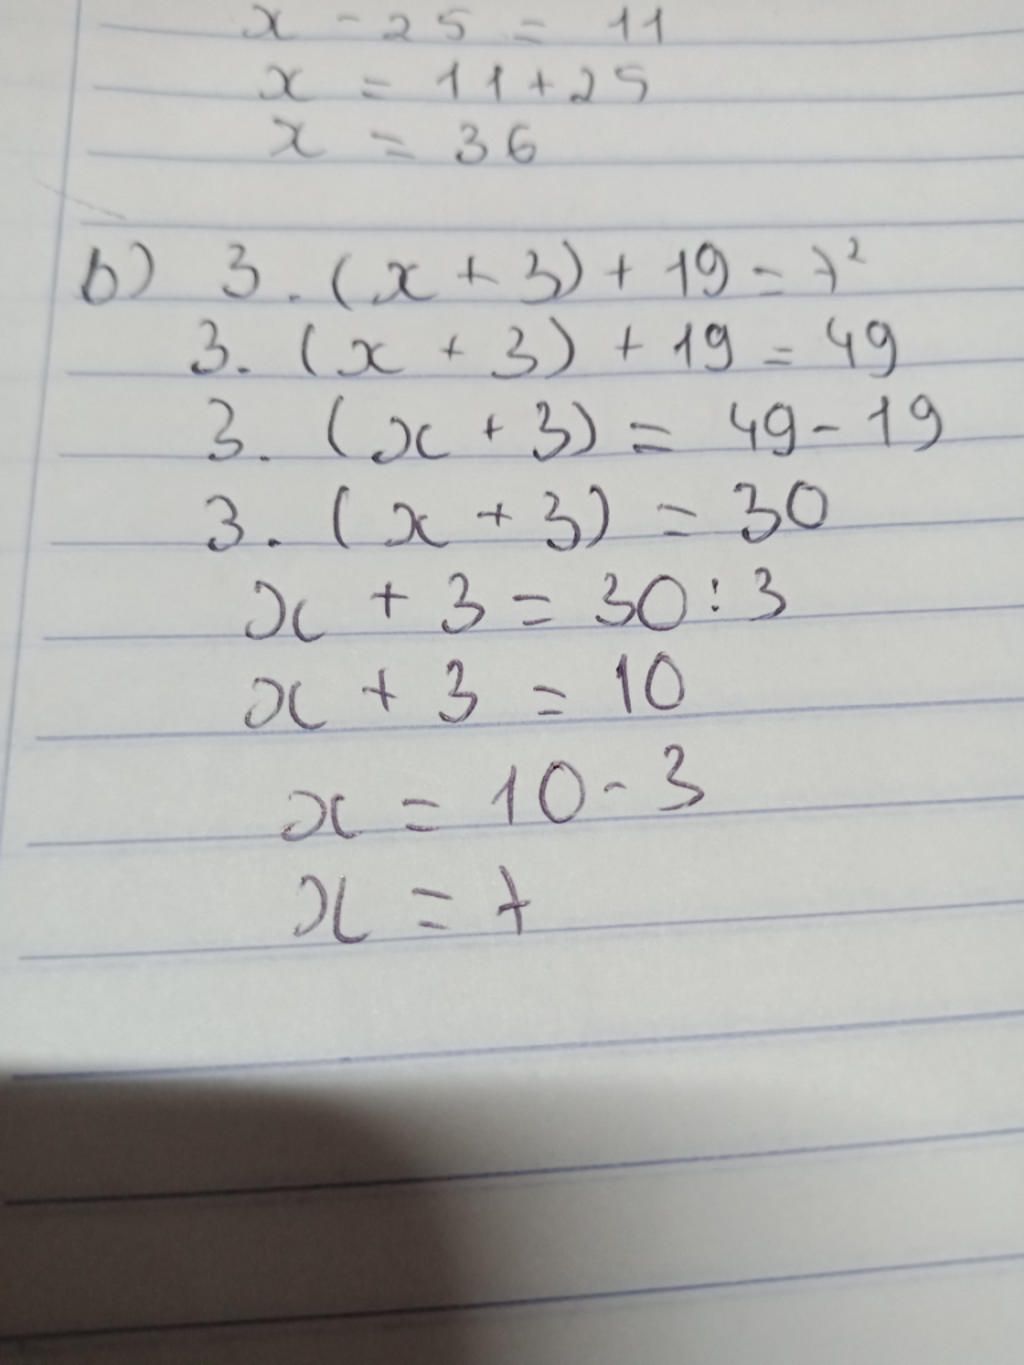 x - 25 = 11
x = 11 + 25
x = 36
b) 3. (x + 3) + 19 = 7²
3. (x + 3) + 19 = 49
3. (x + 3) = 49 - 19
3. (x + 3) = 30
x + 3 = 30 : 3
x + 3 = 10
x = 10 - 3
x = 7